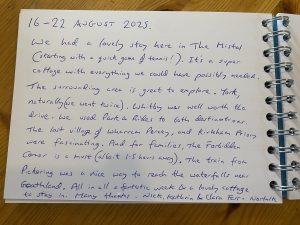 16-22 AUGUST 2025.
We had a lovely stay here in The Mistal
(starting with a quick game of tennis!). It's a super
cottage with everything we could have possibly needed.
The surrounding area is great to explore. York,
naturally (we went twice). Whitby was well worth the
drive. We used Park & Rides to both destinations.
The lost village of Wharram Percy, and Kirkham Priory
were fascinating. And for families, the Forbidden
Corner is a must (albeit 1.5 hours away). The train from
Pickering was a nice way to reach the waterfalls near
Goathland. All in all a fantastic week & a lovely cottage
to stay in. Many thanks - Nick, Kathrin & Clara - Norfolk